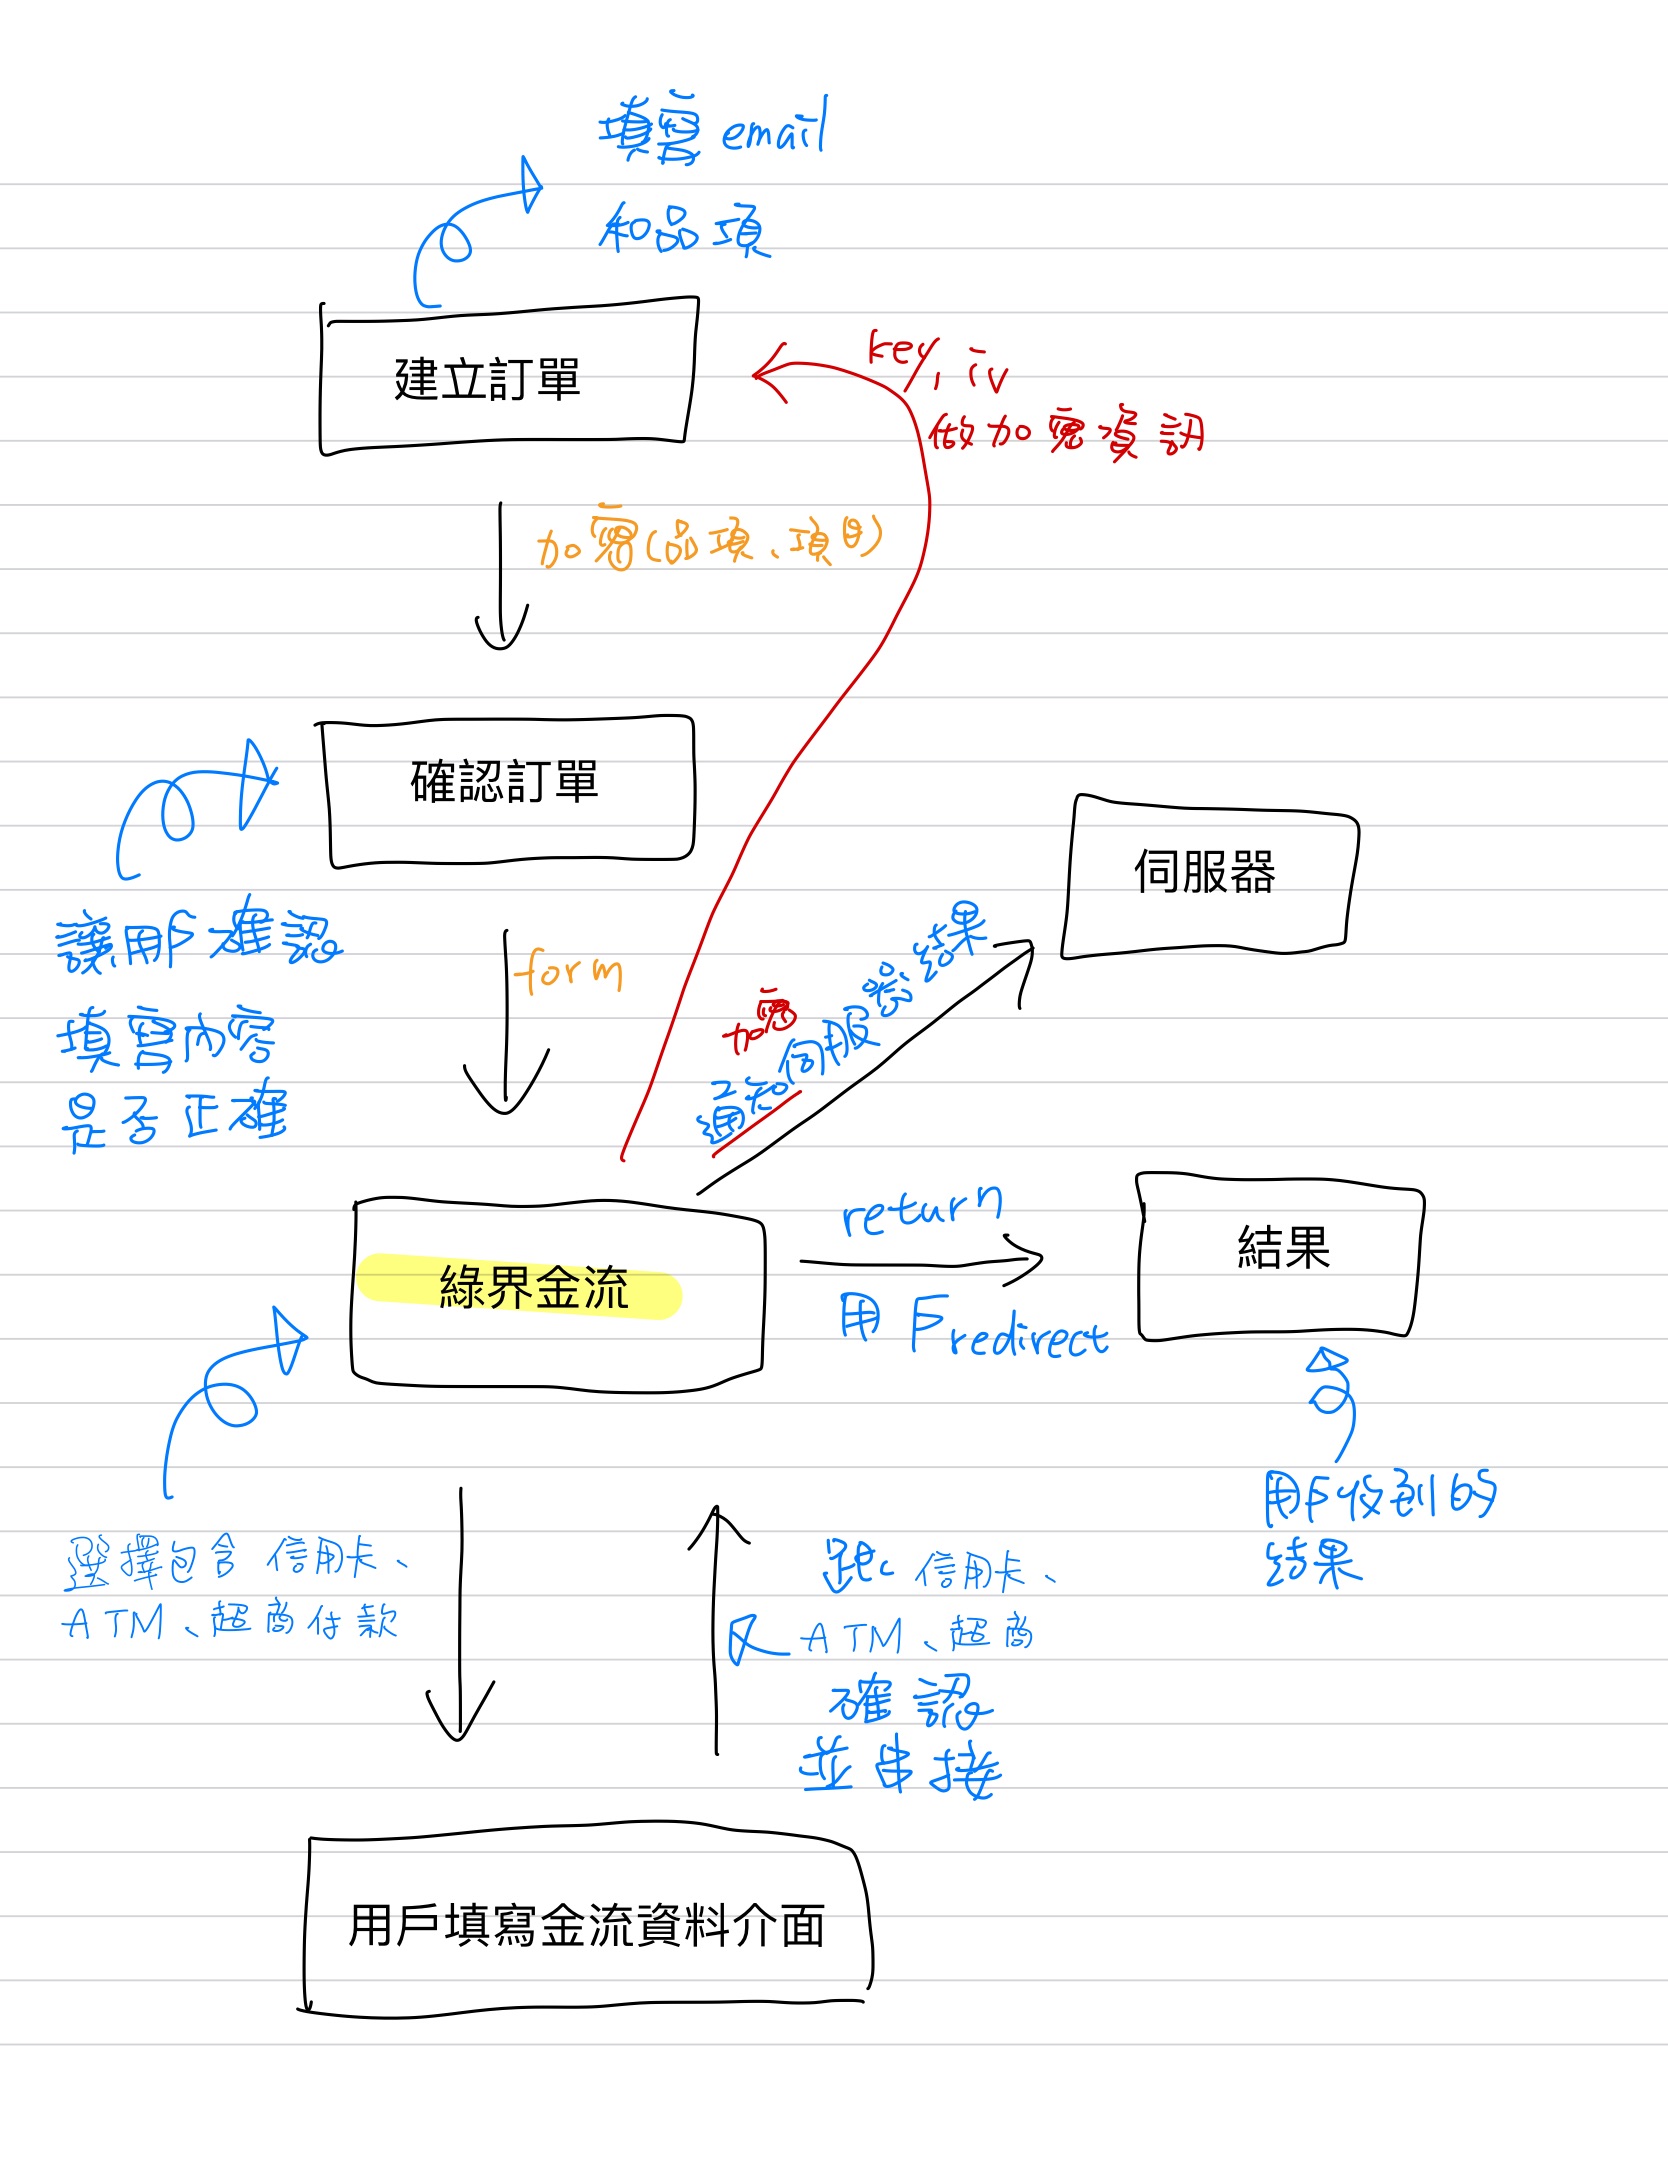 填寫 email
和品項
建立訂單
key, iv
做加密資訊
加密(品項、項目)
確認訂單
讓用戶確認
填寫內容
是否正確
form
伺服器
加密
通知伺服器結果
綠界金流
return
用戶redirect
結果
用戶收到的
結果
選擇包含 信用卡、
ATM、超商付款
跟 信用卡、
ATM、超商
確認
並串接
用戶填寫金流資料介面